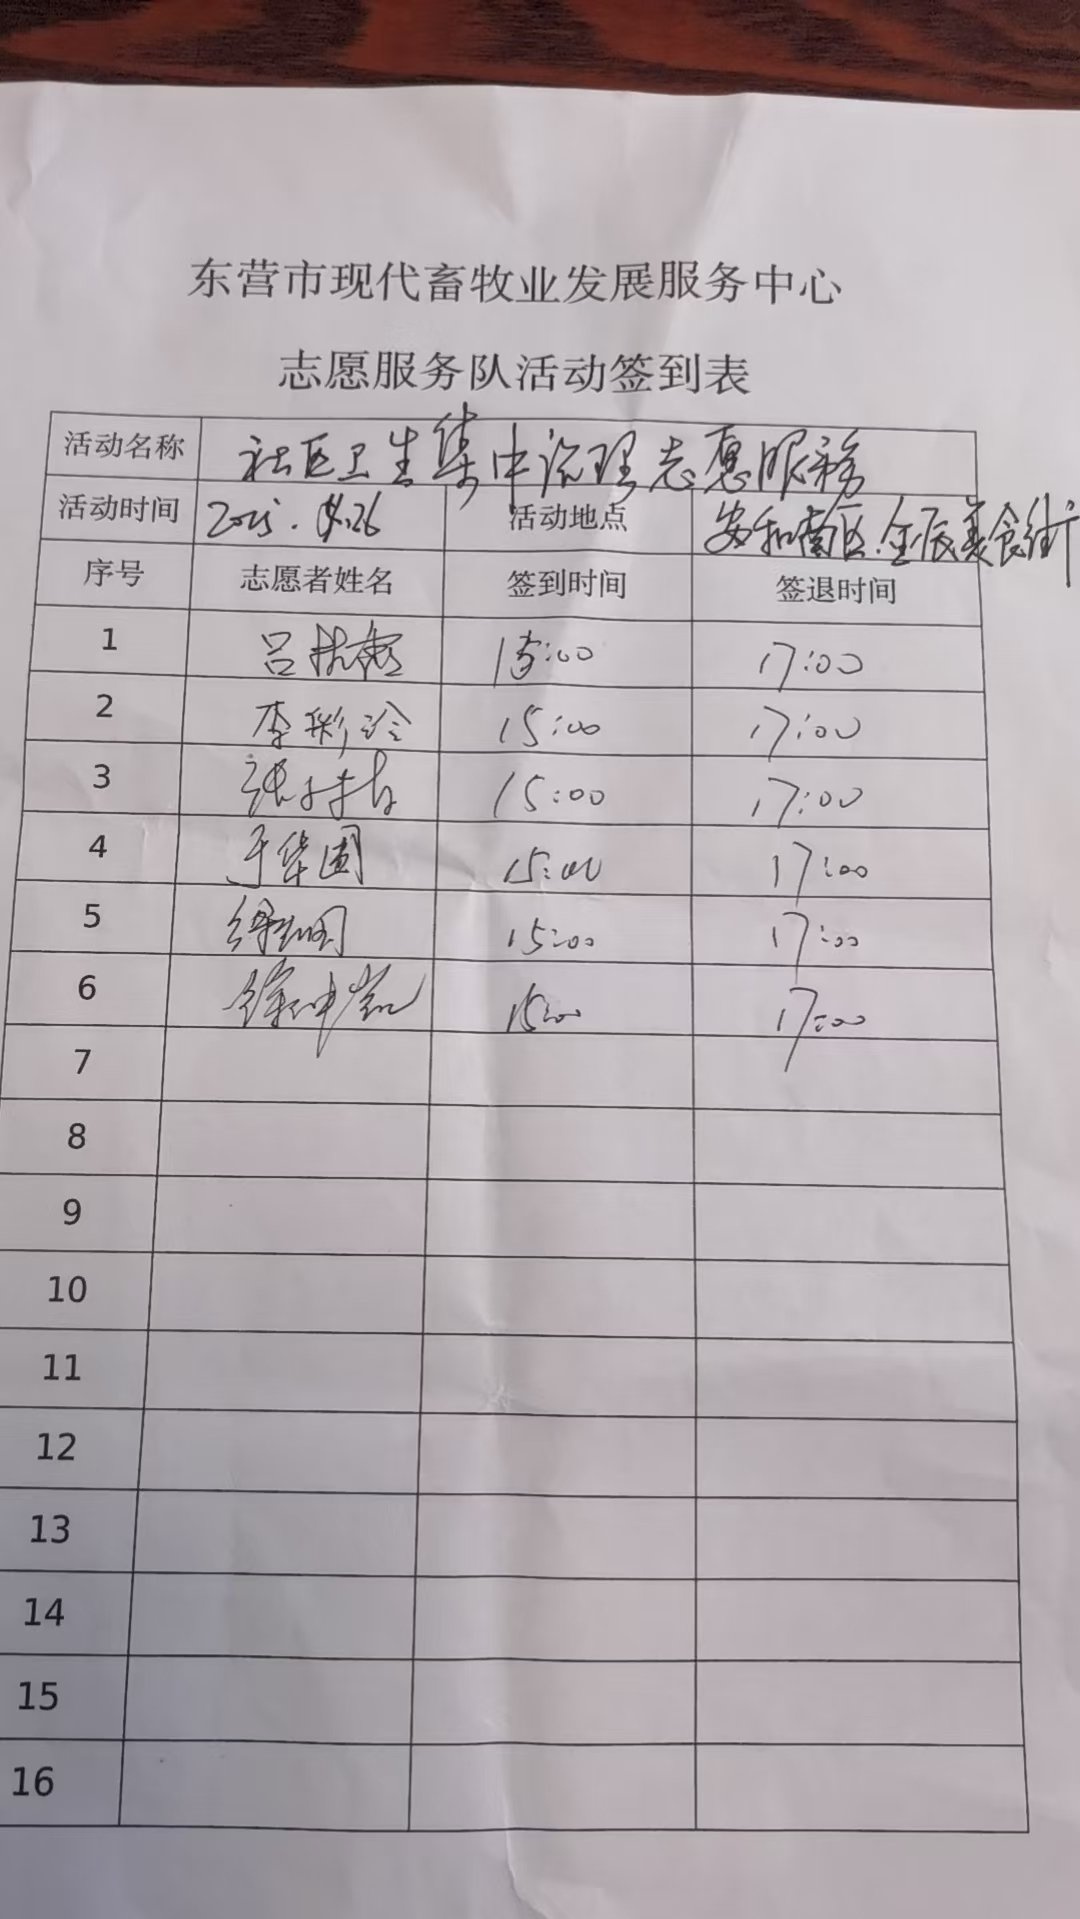 东营市现代畜牧业发展服务中心
志愿服务队活动签到表
活动名称 社区卫生集中治理志愿服务
活动时间 2025. .26 活动地点 安和南区.金辰美食街
序号 志愿者姓名 签到时间 签退时间
1 吕 15:00 17:00
2 李彩玲 15:00 17:00
3 张 15:00 17:00
4 于华国 15:00 17:00
5 15:00 17:00
6 徐 15:00 17:00
7
8
9
10
11
12
13
14
15
16